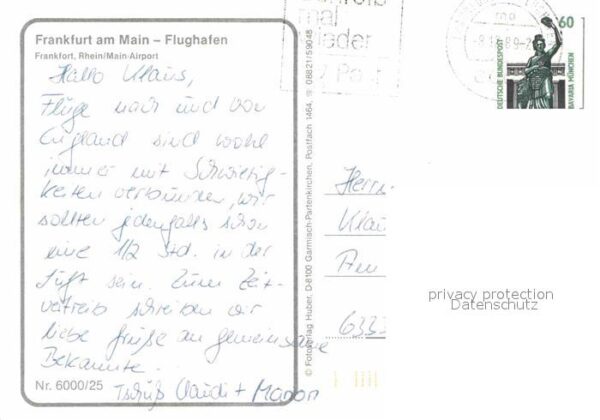 Frankfurt am Main – Flughafen
Frankfurt, Rhein/Main-Airport
Hallo Klaus,
Flüge nach und von
England sind wohl
immer mit Schwierig-
keiten verbunden, wir
sollten jedenfalls schon
eine 1/2 Std. in der
Luft sein. Zum Zeit-
vertreib schreiben wir
liebe Grüße an gemeinsame
Bekannte.
Tschüß Claudi + Manon
Nr. 6000/25
© Fotoverlag Huber, D-8100 Garmisch-Partenkirchen, Postfach 1464, ☎ 08821/59048
mal
wieder
60
DEUTSCHE BUNDESPOST
BAVARIA MÜNCHEN
Herrn
Klau
633
privacy protection
Datenschutz